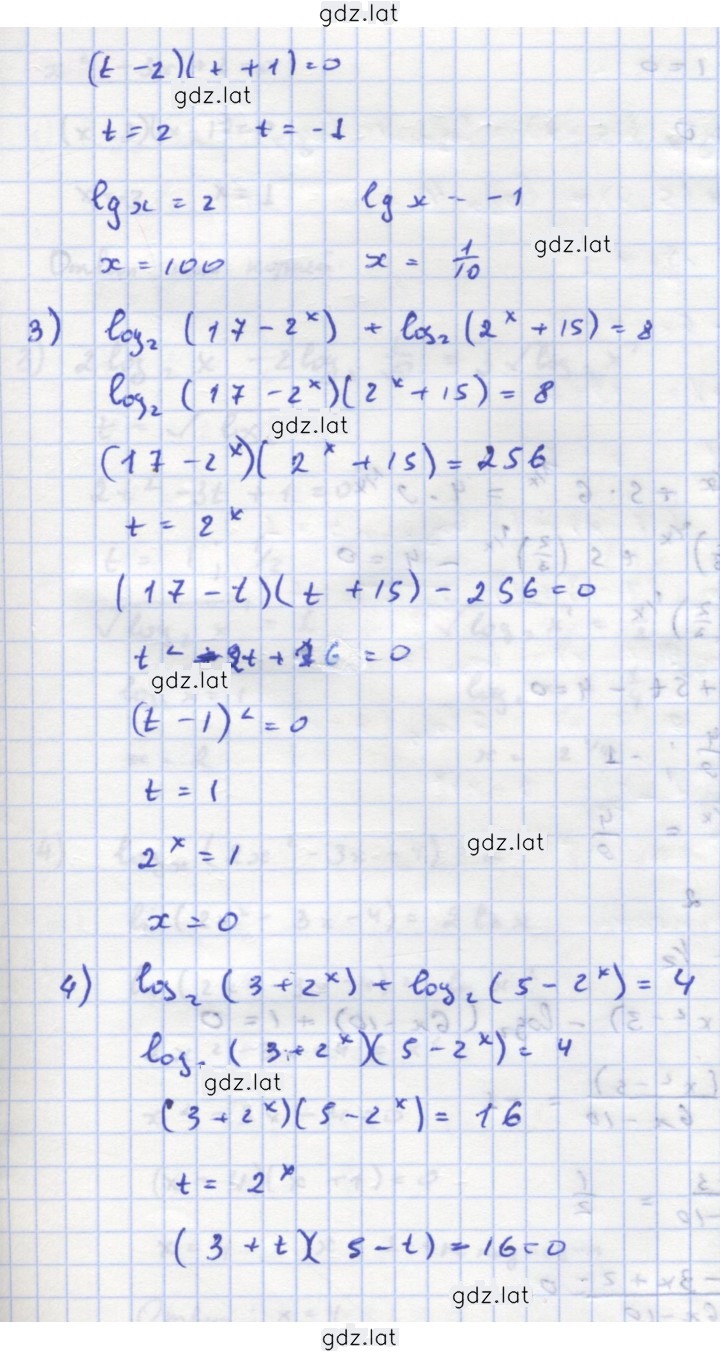 gdz.lat
(t - 2)(t + 1) = 0
gdz.lat
t = 2 t = -1
lg x = 2 lg x = -1
gdz.lat
x = 100 x = 1/10
3) log₂ (17 - 2ˣ) + log₂ (2ˣ + 15) = 8
log₂ (17 - 2ˣ)(2ˣ + 15) = 8
gdz.lat
(17 - 2ˣ)(2ˣ + 15) = 256
t = 2ˣ
(17 - t)(t + 15) - 256 = 0
gdz.lat
(t - 1)² = 0
t = 1
gdz.lat
2ˣ = 1
x = 0
4) log₂ (3 + 2ˣ) + log₂ (5 - 2ˣ) = 4
log₂ (3 + 2ˣ)(5 - 2ˣ) = 4
gdz.lat
(3 + 2ˣ)(5 - 2ˣ) = 16
t = 2ˣ
(3 + t)(5 - t) - 16 = 0
gdz.lat
gdz.lat